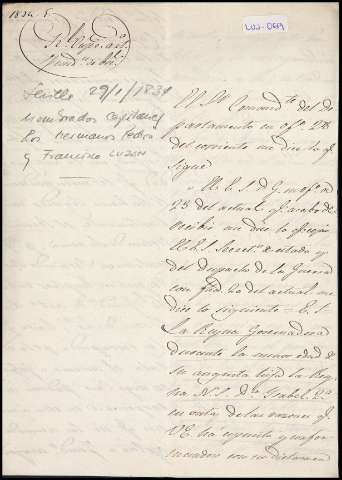 1834-5-
LUJ-0669
Sevilla 29/1/1834
nombrados capitanes
los hermanos Pedro
y Francisco LUJAN
El Sr. Comand.te del De
partamento en of.o 28
del corriente me dice lo q.e
sigue
El E. S. D. G. en of.o
25 del actual q.e acabo de
recibir me dice lo q.e copio
El E. S. Secret.o de estado y
del Despacho de la Guerra
con fha 20 del actual me
dice lo siguiente = E. S.
La Reyna Governadora
durante la menor edad de
su augusta hija la Rey
na N. S. D.a Isabel 2.a
en vista de las razones q.e
V.E. há espuesto y confor
mandose con su dictamen